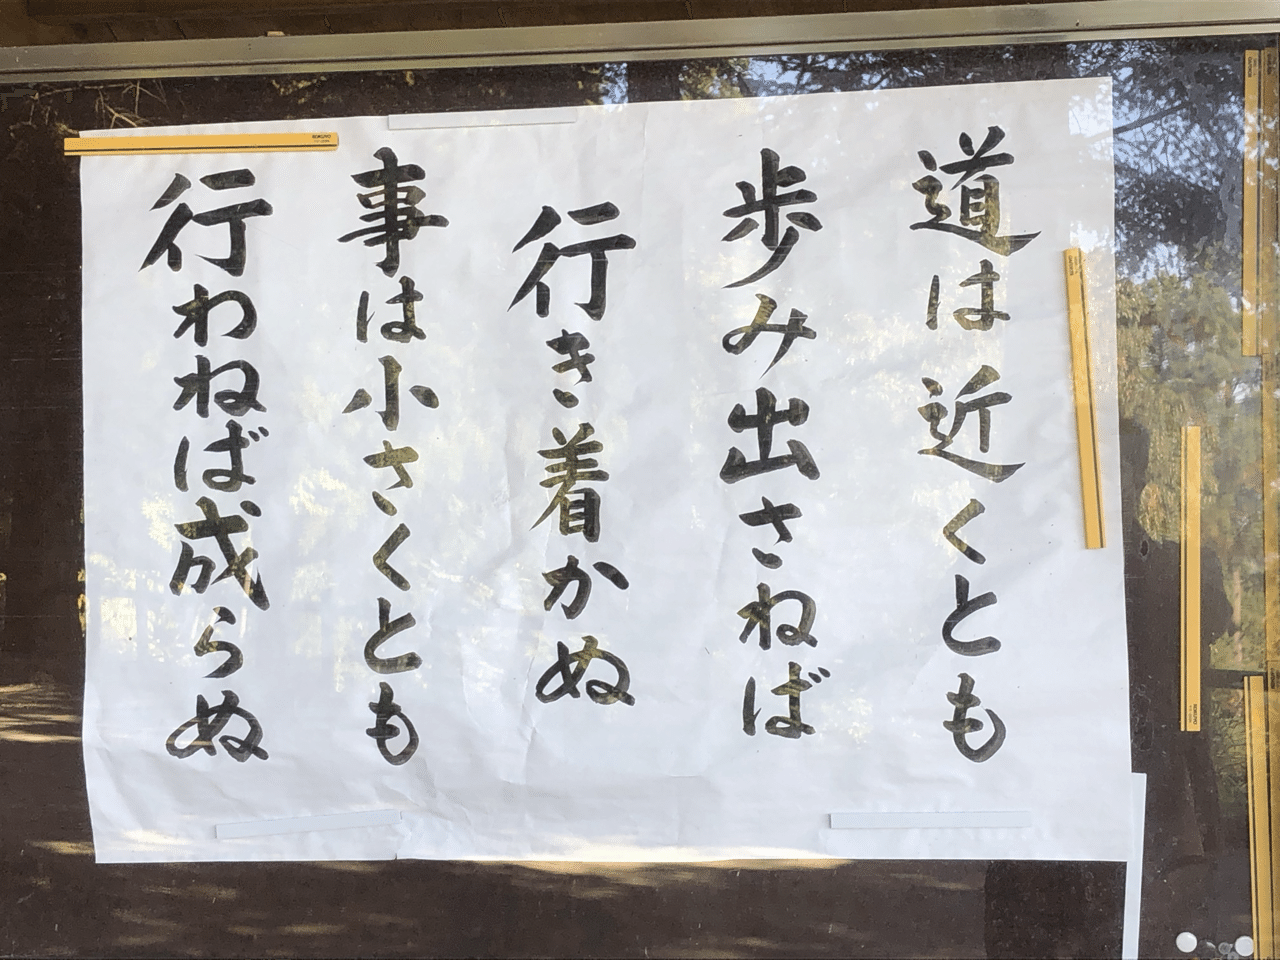 道は近くとも
歩み出さねば
行き着かぬ
事は小さくとも
行わねば成らぬ
KOKUYO